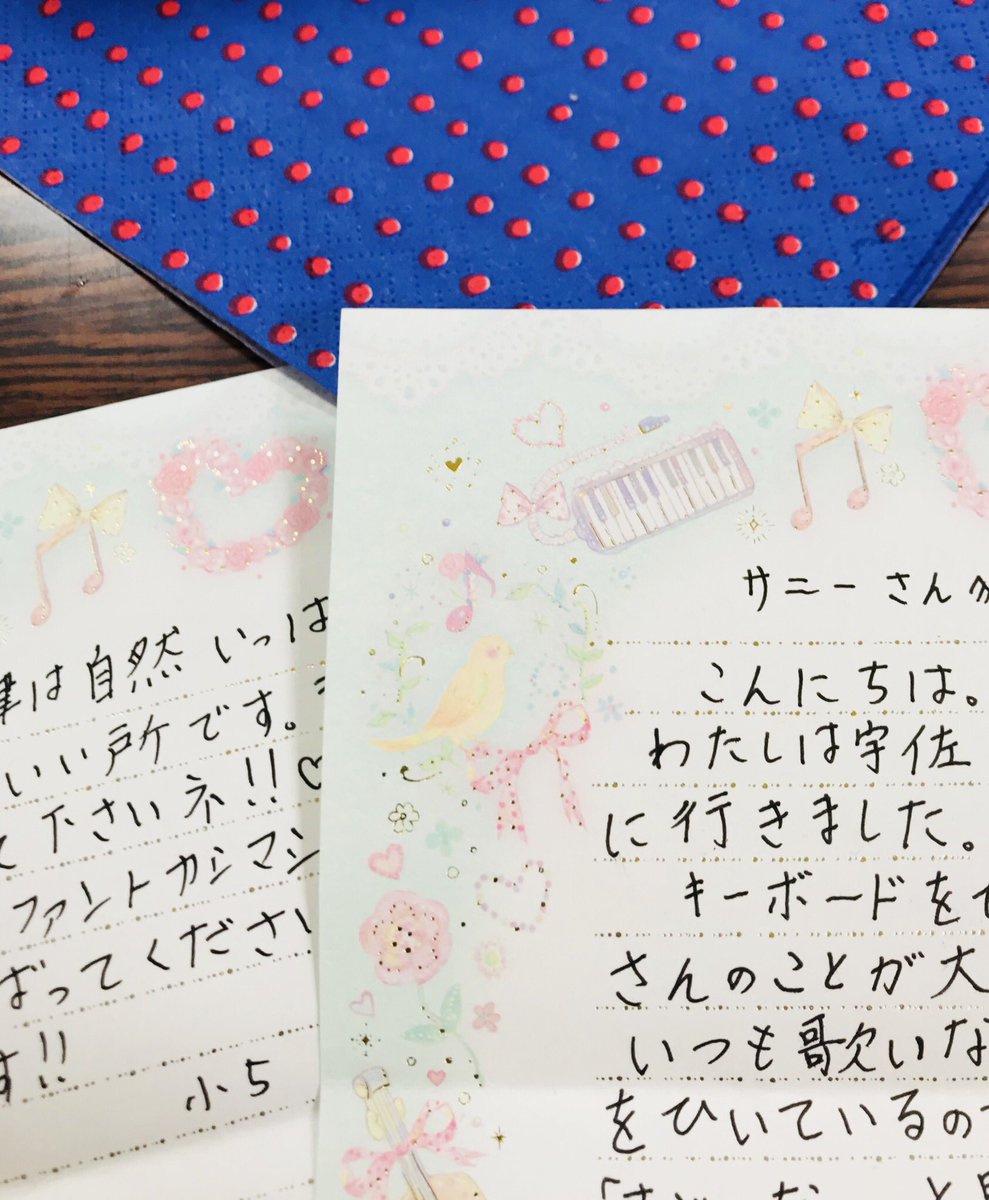 サニーさんへ
こんにちは。
わたしは宇佐
に行きました。
キーボードを
さんのことが大
いつも歌いな
をひいているの
は自然いっぱ
いい所です。
て下さいネ!!♡
ファントカシマシ
ばってください
す!!
小5